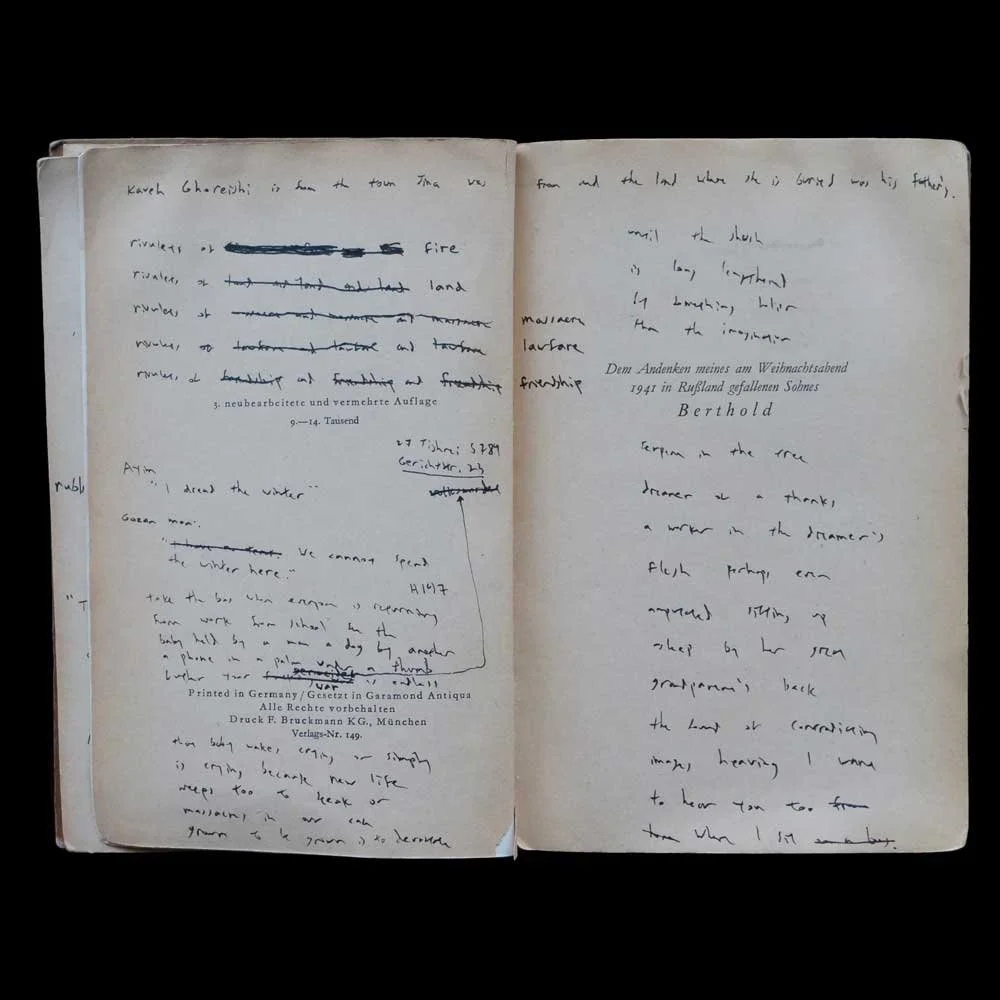 Kaveh Ghoreishi is from the town Jina was from and the land where she is buried was his father's.
rivulets of fire
rivulets of land and land and land land
rivulets of massacre and massacre and massacre massacre
rivulets of lawfare and lawfare and lawfare lawfare
rivulets of friendship and friendship and friendship friendship
3. neubearbeitete und vermehrte Auflage
9.—14. Tausend
27 Tishrei 5784
Gerichtstr. 23
Ayim
"I dread the winter"
publ
"T
"We cannot spend
the winter here."
take the bus when everyone is returning
from work from school in the
baby held by a man a dog by another
a phone in a palm under a thumb
war is endless
Printed in Germany / Gesetzt in Garamond Antiqua
Alle Rechte vorbehalten
Druck F. Bruckmann KG., München
Verlags-Nr. 149.
the baby wakes, crying or simply
is crying because new life
weeps too to leak of
massacres in our
grown to be grown is to
until the
is long lengthened
by something
than the imagination
Dem Andenken meines am Weihnachtsabend
1941 in Rußland gefallenen Sohnes
Berthold
serpent in the tree
dreamer of a
a worker in the dreamer's
flesh perhaps even
amputated sitting up
asleep by her
grandparent's back
the land of contradicting
images hearing I want
to hear you too from
when I sit on a bus.